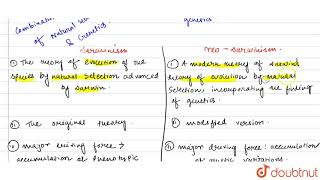 Combination genetics
of Natural sel
& Genetics.
Darwinism Neo - Darwinism.
(i) The theory of Evolution of the (i) A modern theory of Darwins
species by natural Selection advanced theory of evolution by natural
by Darwin. Selection, incorporating the finding
of genetics.
(ii) The original theory. (ii) modified version.
(iii) major driving force → (iii) major driving force: accumulation
accumulation of Phenotypic of genetic variations.
doubtnut